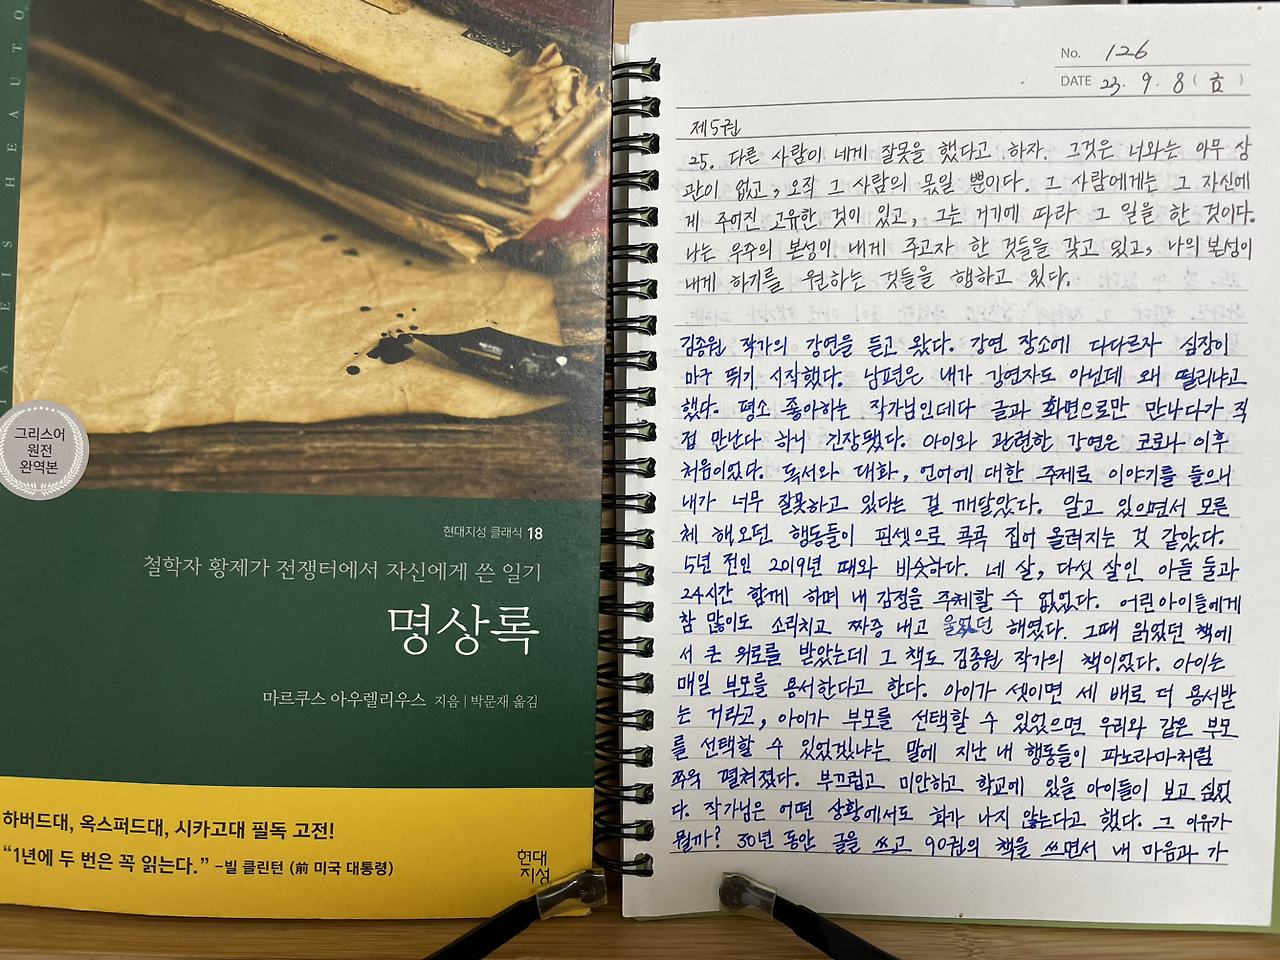 TA EIS HEAUTO
그리스어
원전
완역본
현대지성 클래식 18
철학자 황제가 전쟁터에서 자신에게 쓴 일기
명상록
마르쿠스 아우렐리우스 지음 | 박문재 옮김
하버드대, 옥스퍼드대, 시카고대 필독 고전!
“1년에 두 번은 꼭 읽는다.” –빌 클린턴 (前 미국 대통령)
현대
지성
No. 126
DATE 23. 9. 8 ( 금 )
제5권
25. 다른 사람이 내게 잘못을 했다고 하자. 그것은 너와는 아무 상
관이 없고, 오직 그 사람의 몫일 뿐이다. 그 사람에게는 그 자신에
게 주어진 고유한 것이 있고, 그는 거기에 따라 그 일을 한 것이다.
나는 우주의 본성이 내게 주고자 한 것들을 갖고 있고, 나의 본성이
내게 하기를 원하는 것들을 행하고 있다.
김종원 작가의 강연을 듣고 왔다. 강연 장소에 다다르자 심장이
마구 뛰기 시작했다. 남편은 내가 강연자도 아닌데 왜 떨리냐고
했다. 평소 좋아하는 작가님인데다 글과 화면으로만 만나다가 직
접 만난다 하니 긴장됐다. 아이와 관련한 강연은 코로나 이후
처음이었다. 독서와 대화, 언어에 대한 주제로 이야기를 들으니
내가 너무 잘못하고 있다는 걸 깨달았다. 알고 있으면서 모른
체 해오던 행동들이 핀셋으로 콕콕 집어 올려지는 것 같았다.
5년 전인 2019년 때와 비슷하다. 네 살, 다섯 살인 아들 둘과
24시간 함께 하며 내 감정을 주체할 수 없었다. 어린아이들에게
참 많이도 소리치고 짜증 내고 울었던 해였다. 그때 읽었던 책에
서 큰 위로를 받았는데 그 책도 김종원 작가의 책이었다. 아이는
매일 부모를 용서한다고 한다. 아이가 셋이면 세 배로 더 용서받
는 거라고, 아이가 부모를 선택할 수 있었으면 우리와 같은 부모
를 선택할 수 있었겠냐는 말에 지난 내 행동들이 파노라마처럼
쫘악 펼쳐졌다. 부끄럽고 미안하고 학교에 있을 아이들이 보고 싶었
다. 작가님은 어떤 상황에서도 화가 나지 않는다고 했다. 그 이유가
뭘까? 30년 동안 글을 쓰고 90권의 책을 쓰면서 내 마음과 가